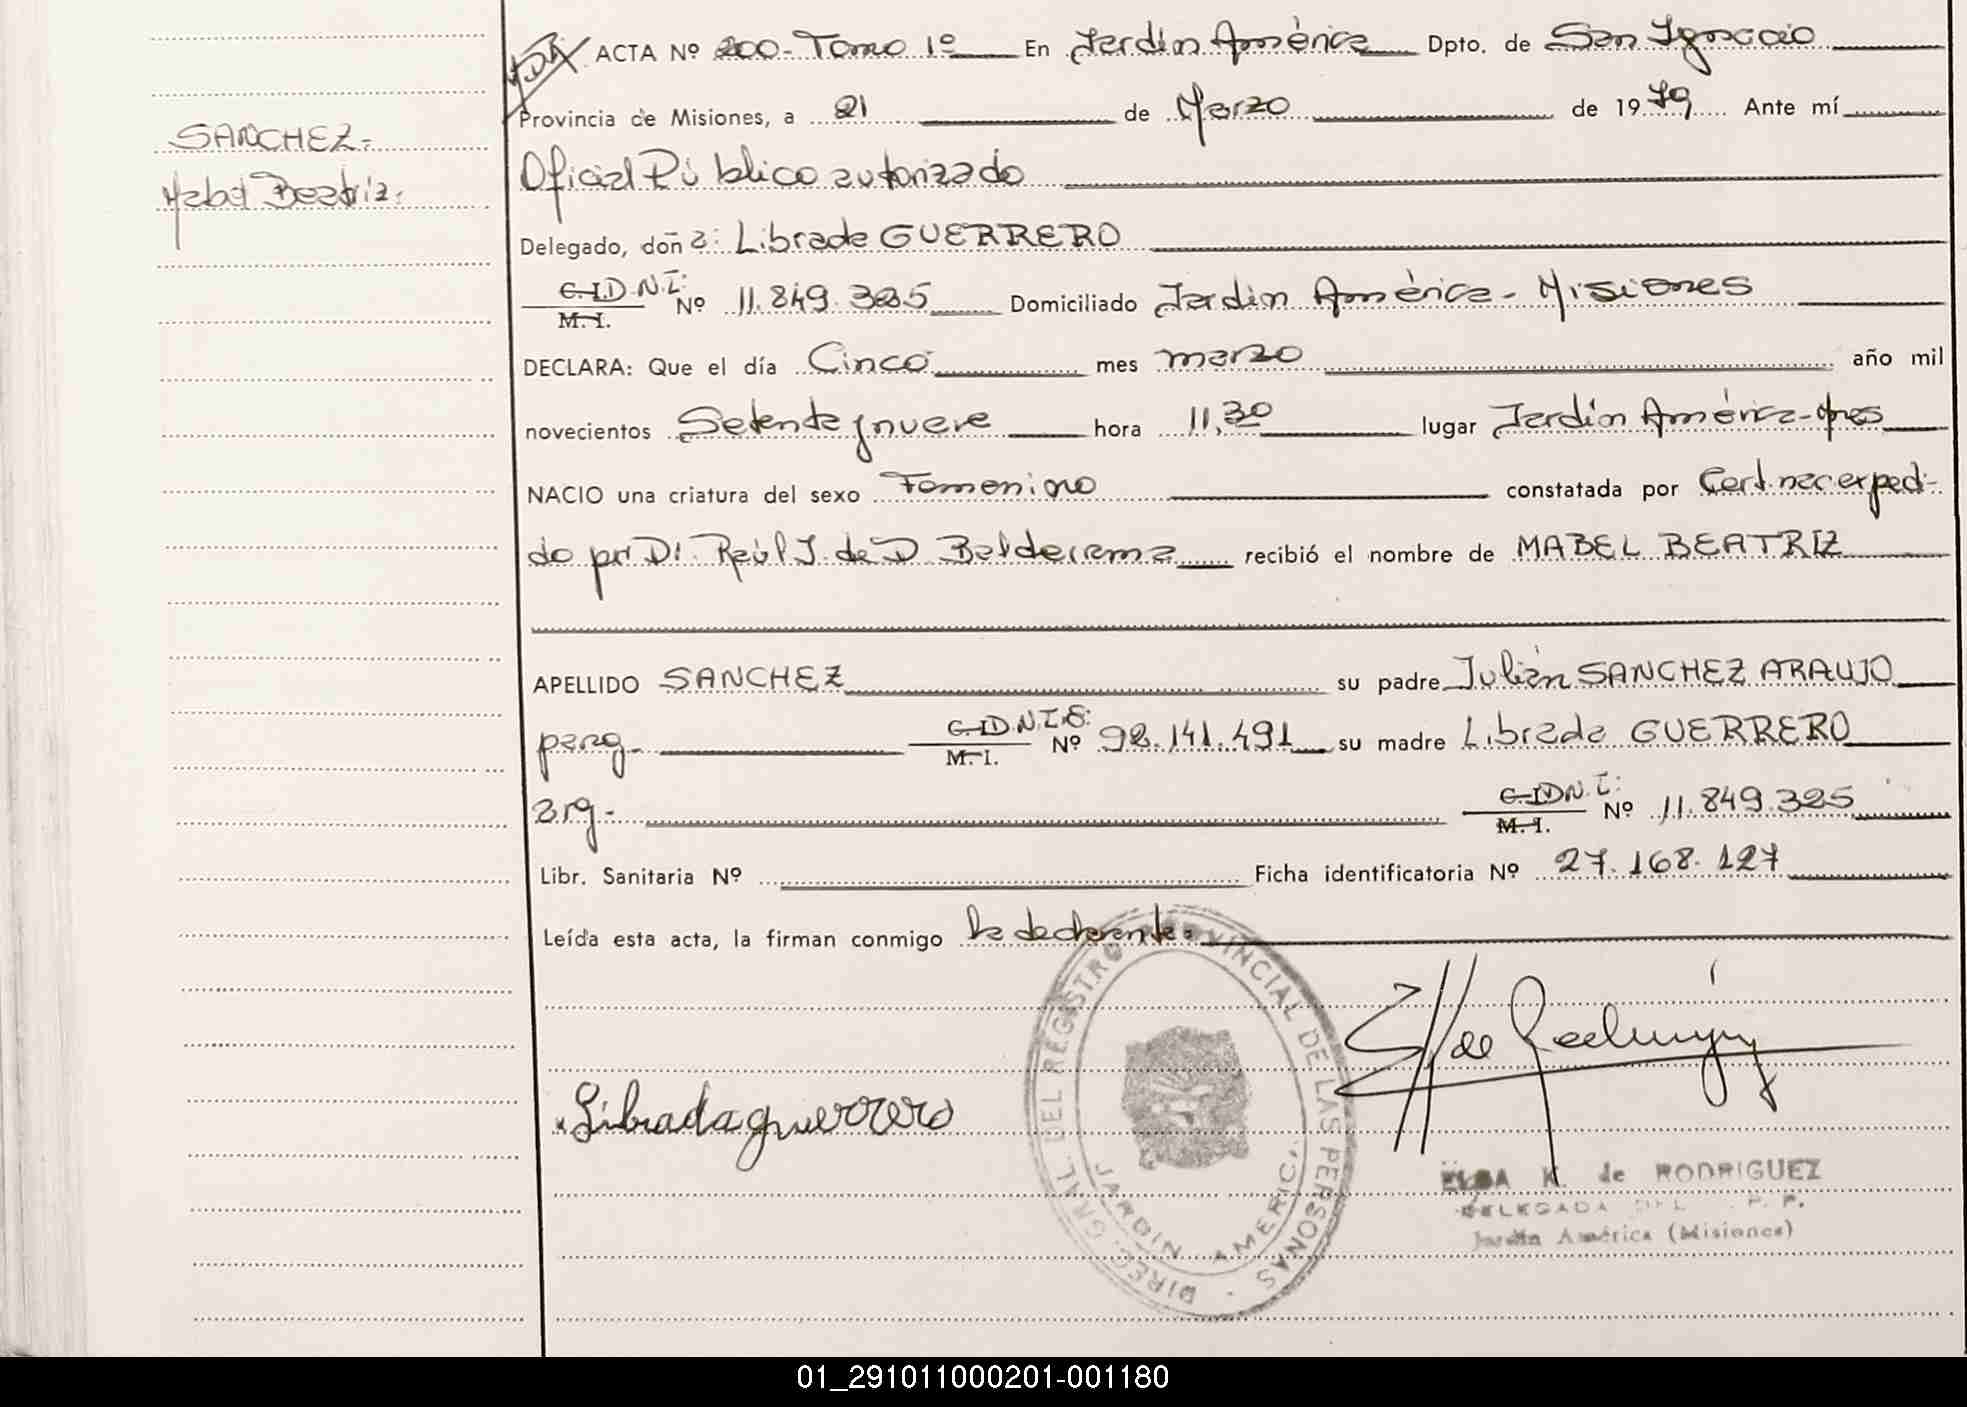 SANCHEZ-
Mabel Beatriz.
ACTA Nº 200- Tomo 1º En Jardín América Dpto. de San Ignacio
Provincia de Misiones, a 21 de Marzo de 1979 Ante mí
Oficial Público autorizado
Delegado, doña: Librada GUERRERO
C.I.D.N.I. M.I. Nº 11.849.325 Domiciliado Jardín América- Misiones
DECLARA: Que el día Cinco mes marzo año mil
novecientos Setenta y nueve hora 11,30 lugar Jardín América-Mnes
NACIO una criatura del sexo Femenino constatada por Cert. nac. expedi-
do por Dr. Raúl J. de D. Balderrama recibió el nombre de MABEL BEATRIZ
APELLIDO SANCHEZ su padre Julián SANCHEZ ARAUJO
parag. C.I.D.N.I.E. M.I. Nº 92.141.491 su madre Librada GUERRERO
arg- C.I.D.N.I. M.I. Nº 11.849.325
Libr. Sanitaria Nº Ficha identificatoria Nº 27.168.127
Leída esta acta, la firman conmigo la declarante.
Librada guerrero
DIREC. GRAL. DEL REGISTRO PROVINCIAL DE LAS PERSONAS
JARDIN AMERICA
ELBA K. de RODRIGUEZ
DELEGADA DEL P. P.
Jardín América (Misiones)
01_291011000201-001180